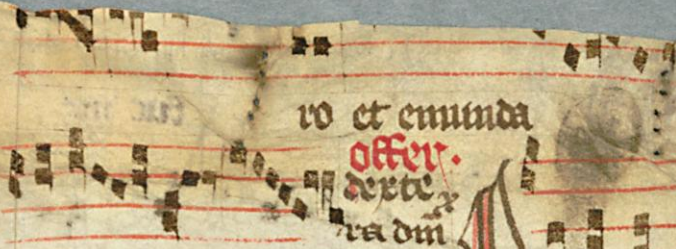 ro et emunda
offer.
dexte
ra dm̅